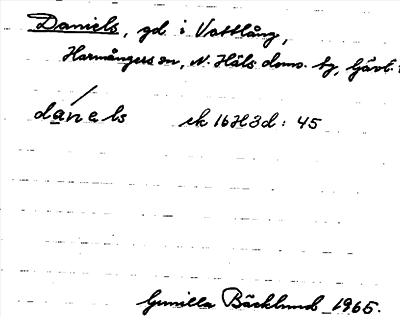 Daniels, gd. i Vattlång,
Harmångers sn, N. Häls. doms. tg, Gävl.
dánels ek 16H3d: 45
Gunilla Bäcklund 1965.